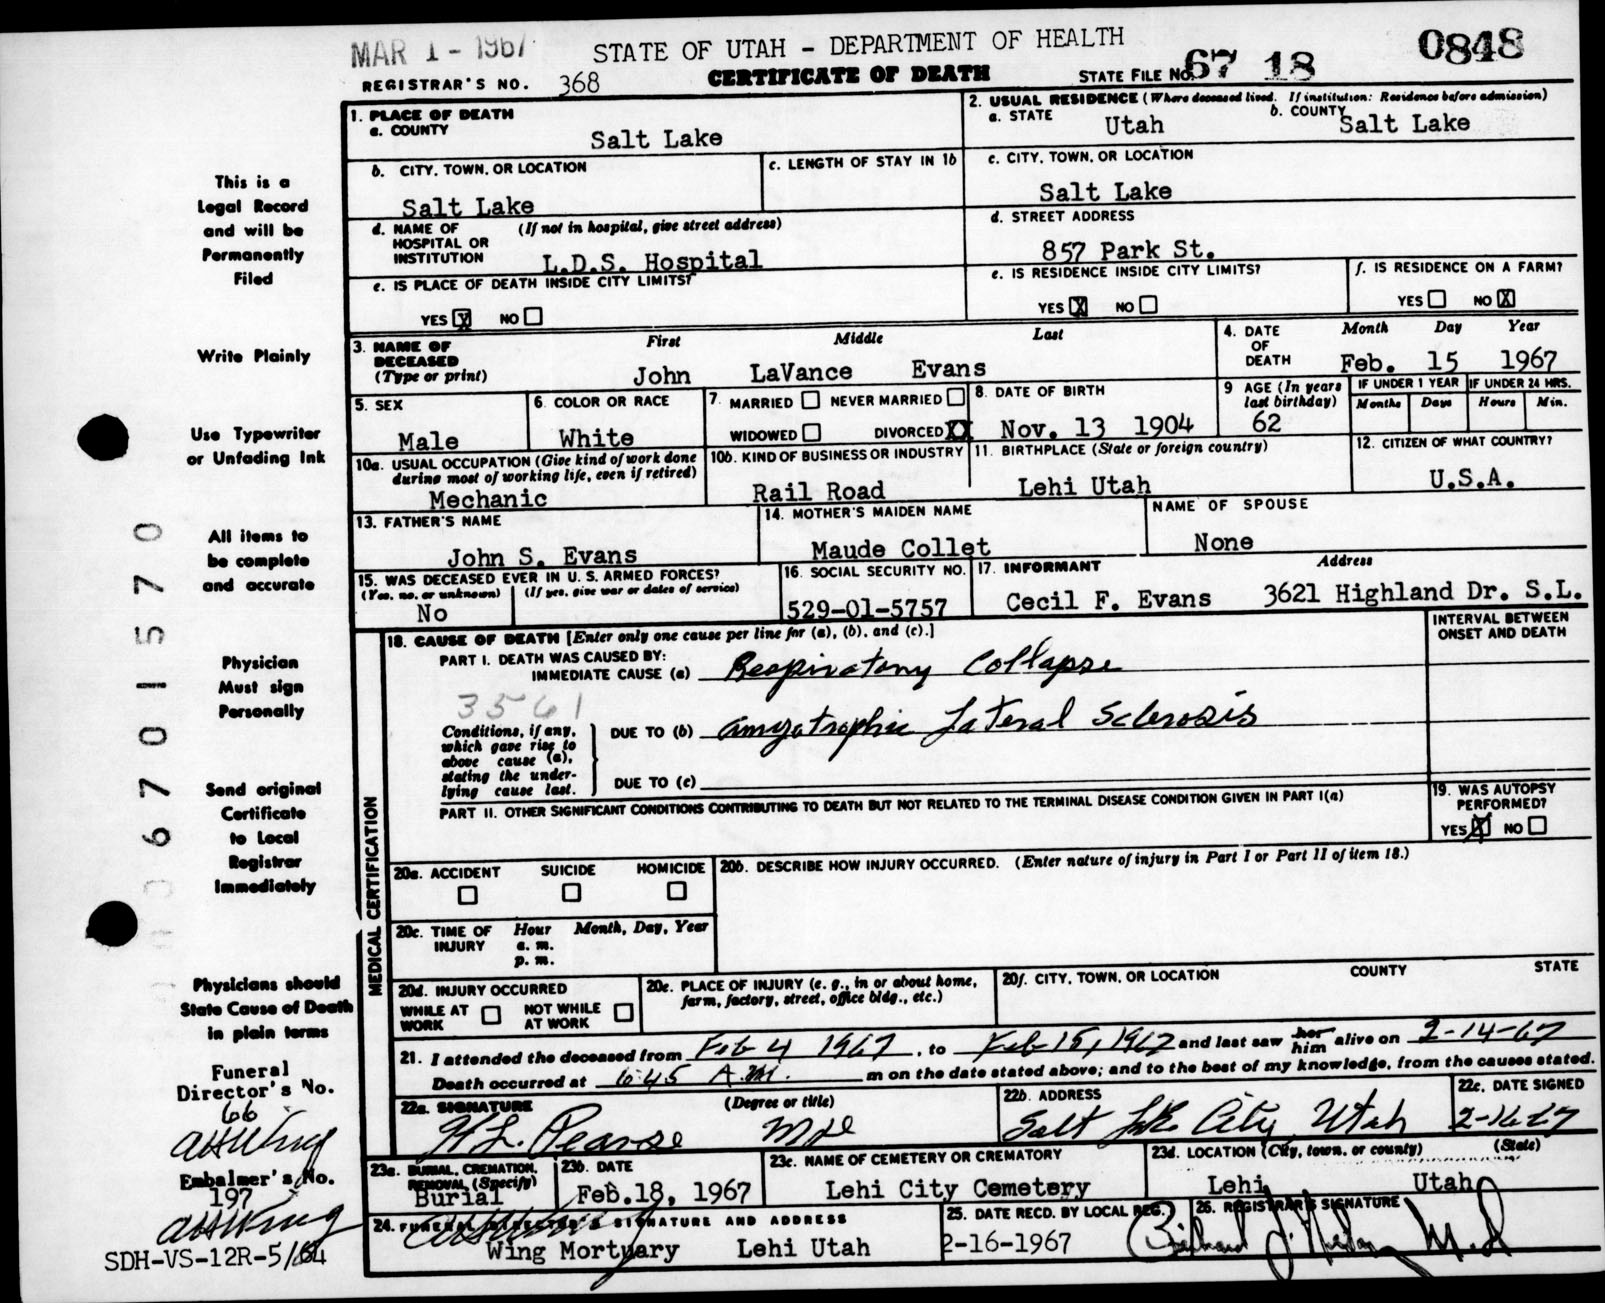 MAR 1 - 1967
STATE OF UTAH - DEPARTMENT OF HEALTH
0848
REGISTRAR'S NO. 368
CERTIFICATE OF DEATH
STATE FILE NO. 67 18
1. PLACE OF DEATH
a. COUNTY
Salt Lake
2. USUAL RESIDENCE (Where deceased lived. If institution: Residence before admission)
a. STATE
Utah
b. COUNTY
Salt Lake
b. CITY, TOWN, OR LOCATION
Salt Lake
c. LENGTH OF STAY IN 1b
c. CITY, TOWN, OR LOCATION
Salt Lake
d. NAME OF HOSPITAL OR INSTITUTION
(If not in hospital, give street address)
L.D.S. Hospital
d. STREET ADDRESS
857 Park St.
e. IS PLACE OF DEATH INSIDE CITY LIMITS?
YES X NO
e. IS RESIDENCE INSIDE CITY LIMITS?
YES X NO
f. IS RESIDENCE ON A FARM?
YES NO X
3. NAME OF DECEASED (Type or print)
First Middle Last
John LaVance Evans
4. DATE OF DEATH
Month Day Year
Feb. 15 1967
5. SEX
Male
6. COLOR OR RACE
White
7. MARRIED NEVER MARRIED
WIDOWED DIVORCED XX
8. DATE OF BIRTH
Nov. 13 1904
9 AGE (In years last birthday)
62
IF UNDER 1 YEAR
Months Days
IF UNDER 24 HRS.
Hours Min.
10a. USUAL OCCUPATION (Give kind of work done during most of working life, even if retired)
Mechanic
10b. KIND OF BUSINESS OR INDUSTRY
Rail Road
11. BIRTHPLACE (State or foreign country)
Lehi Utah
12. CITIZEN OF WHAT COUNTRY?
U.S.A.
13. FATHER'S NAME
John S. Evans
14. MOTHER'S MAIDEN NAME
Maude Collet
NAME OF SPOUSE
None
15. WAS DECEASED EVER IN U. S. ARMED FORCES?
(Yes, no, or unknown) (If yes, give war or dates of service)
No
16. SOCIAL SECURITY NO.
529-01-5757
17. INFORMANT Address
Cecil F. Evans 3621 Highland Dr. S.L.
MEDICAL CERTIFICATION
18. CAUSE OF DEATH [Enter only one cause per line for (a), (b), and (c).]
INTERVAL BETWEEN ONSET AND DEATH
PART I. DEATH WAS CAUSED BY:
IMMEDIATE CAUSE (a) Respiratory Collapse
3561
Conditions, if any, which gave rise to above cause (a), stating the underlying cause last.
DUE TO (b) Amyotrophic Lateral Sclerosis
DUE TO (c)
PART II. OTHER SIGNIFICANT CONDITIONS CONTRIBUTING TO DEATH BUT NOT RELATED TO THE TERMINAL DISEASE CONDITION GIVEN IN PART I(a)
19. WAS AUTOPSY PERFORMED?
YES X NO
20a. ACCIDENT SUICIDE HOMICIDE
20b. DESCRIBE HOW INJURY OCCURRED. (Enter nature of injury in Part I or Part II of item 18.)
20c. TIME OF INJURY
Hour Month, Day, Year
a. m.
p. m.
20d. INJURY OCCURRED
WHILE AT WORK NOT WHILE AT WORK
20e. PLACE OF INJURY (e. g., in or about home, farm, factory, street, office bldg., etc.)
20f. CITY, TOWN, OR LOCATION COUNTY STATE
21. I attended the deceased from Feb 4 1967, to Feb 15, 1967 and last saw her him alive on 2-14-67
Death occurred at 6:45 A.M. m on the date stated above; and to the best of my knowledge, from the causes stated.
22a. SIGNATURE (Degree or title)
H L. Pearse MD
22b. ADDRESS
Salt Lake City, Utah
22c. DATE SIGNED
2-16-67
23a. BURIAL, CREMATION, REMOVAL (Specify)
Burial
23b. DATE
Feb.18, 1967
23c. NAME OF CEMETERY OR CREMATORY
Lehi City Cemetery
23d. LOCATION (City, town, or county) (State)
Lehi Utah
24. FUNERAL DIRECTOR'S SIGNATURE AND ADDRESS
Wing Mortuary Lehi Utah
25. DATE RECD. BY LOCAL REG.
2-16-1967
26. REGISTRAR'S SIGNATURE
This is a
Legal Record
and will be
Permanently
Filed
Write Plainly
Use Typewriter
or Unfading Ink
All items to
be complete
and accurate
Physician
Must sign
Personally
Send original
Certificate
to Local
Registrar
Immediately
Physicians should
State Cause of Death
in plain terms
Funeral
Director's No.
66
Embalmer's No.
197
SDH-VS-12R-5/64
6701570